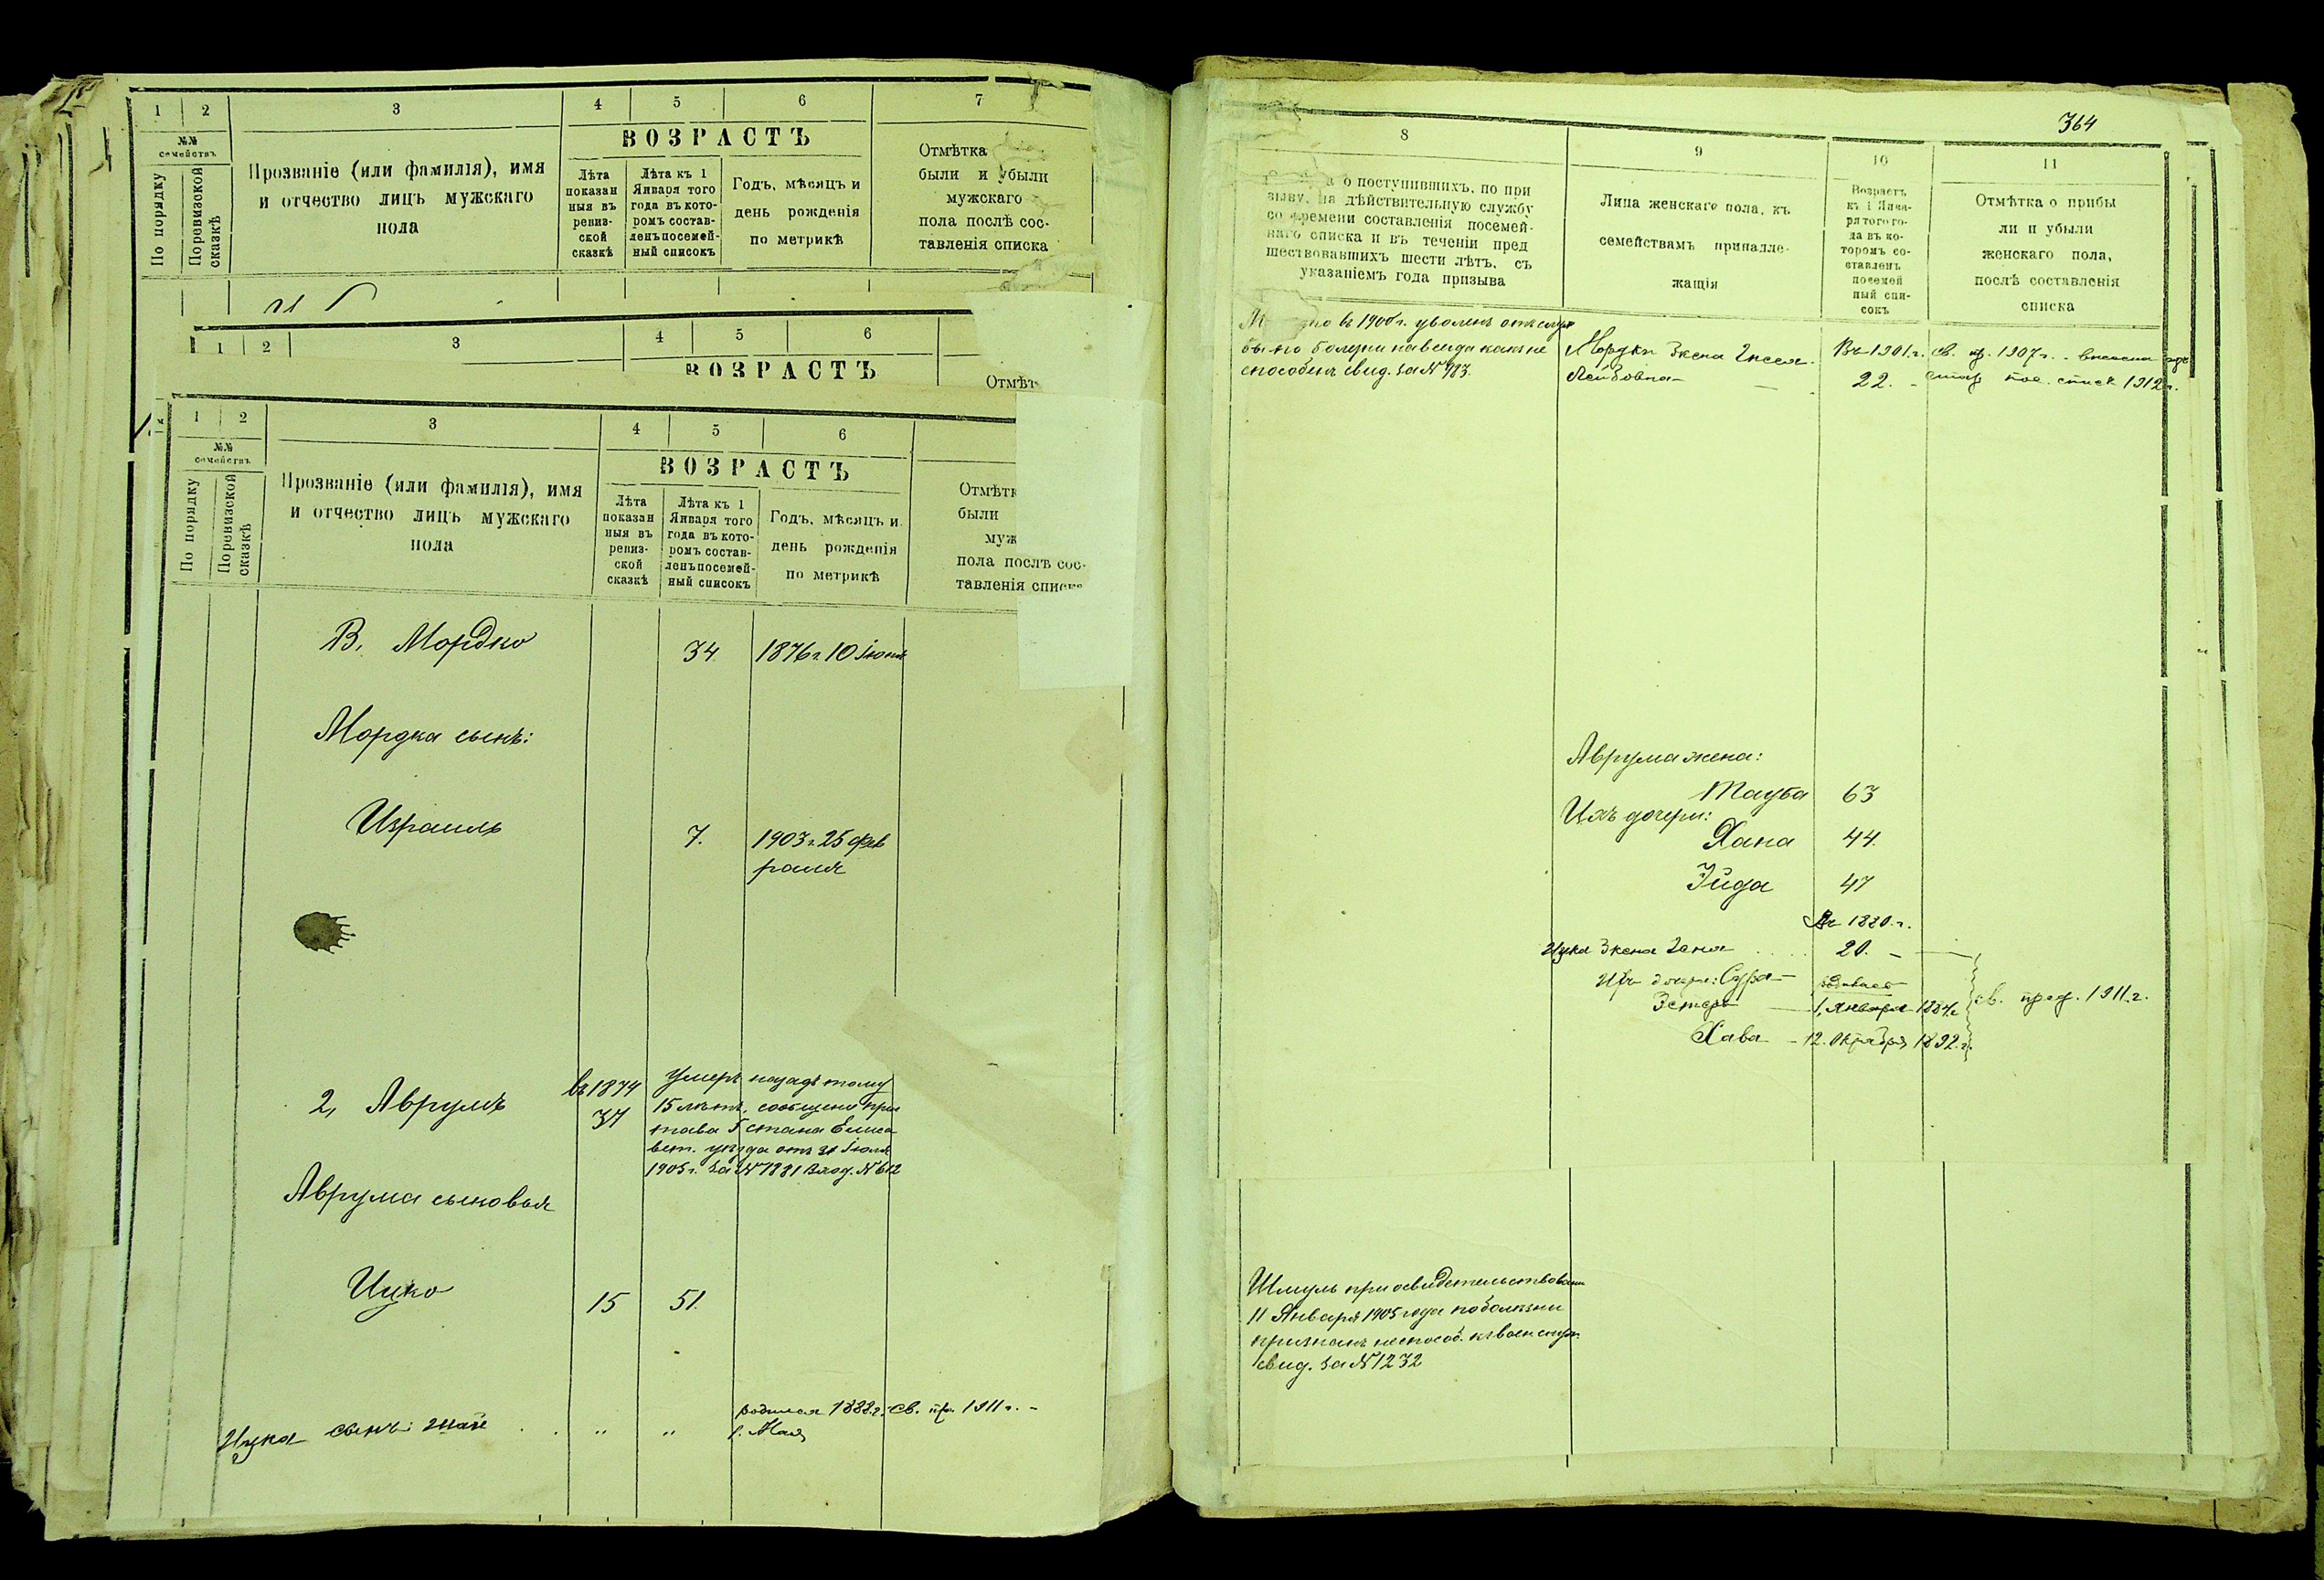 1 2 3 4 5 6 7
№№ семействъ
По порядку
По ревизской сказкѣ
Прозваніе (или фамилія), имя
и отчество лицъ мужскаго
пола
ВОЗРАСТЪ
Лѣта
показан
ныя въ
ревиз-
ской
сказкѣ
Лѣта къ 1
Января того
года въ кото-
ромъ состав-
ленъ посемей-
ный списокъ
Годъ, мѣсяцъ и
день рожденія
по метрикѣ
Отмѣтка
были и убыли
мужскаго
пола послѣ сос-
тавленія списка
1 2 3 4 5 6
ВОЗРАСТЪ
Отмѣт
1 2 3 4 5 6
№№
семействъ
По порядку
По ревизской
сказкѣ
Прозваніе (или фамилія), имя
и отчество лицъ мужскаго
пола
ВОЗРАСТЪ
Лѣта
показан
ныя въ
ревиз-
ской
сказкѣ
Лѣта къ 1
Января того
года въ кото-
ромъ состав-
ленъ посемей-
ный списокъ
Годъ, мѣсяцъ и
день рожденія
по метрикѣ
Отмѣтк
были
муж
пола послѣ сос-
тавленія списка
В. Мордко 34 1876 г. 10 Іюня
Мордка сынъ:
Израиль 7. 1903 г. 25 фев
раля
2, Аврумъ въ 1874
37
Умеръ назадъ тому
15 лѣтъ, сообщено при
тава 5 стана Елиса
вет. уѣзда отъ 31 Іюля
1905 г. за № 7881 Вход. № 612
Аврума сыновья
Ицко 15 51.
Ицка сынъ: Шае " " родился 1888 г. св. пр. 1911 г. -
1. Мая
364
8 9 10 11
о поступившихъ, по при
зыву, на дѣйствительную службу
со времени составленія посемей-
наго списка и въ теченіи пред
шествовавшихъ шести лѣтъ, съ
указаніемъ года призыва
Лица женскаго пола, къ
семействамъ принадле-
жащія
Возрастъ
къ 1 Янва-
ря того го-
да въ ко-
торомъ со-
ставленъ
посемей
ный спи-
сокъ
Отмѣтка о прибы
ли и убыли
женскаго пола,
послѣ составленія
списка
въ 1900 г. уволенъ отъ служ
бы по болѣзни навсегда какъ не
способенъ свид. за № 983.
Мордки Жена
Лейбовна —
Въ 1901. г.
22. -
св. пр. 1907 г. - внесена
пос. списк 1912 г.
Аврума жена:
Тауба 63
Ихъ дочери:
Хана 44.
Зйда 47
Въ 1880. г.
Ицка Жена Ханя 20. -
Ихъ дочери: Сура —
Эстеръ — 1, Января 1884. г.
св. пред. 1911. г.
Хава — 12. Октября 1892. г.
Шмуль при освидетельствовани
11 Января 1905 года по болѣзни
признанъ неспособ. къ воен служ.
свид. за № 1232